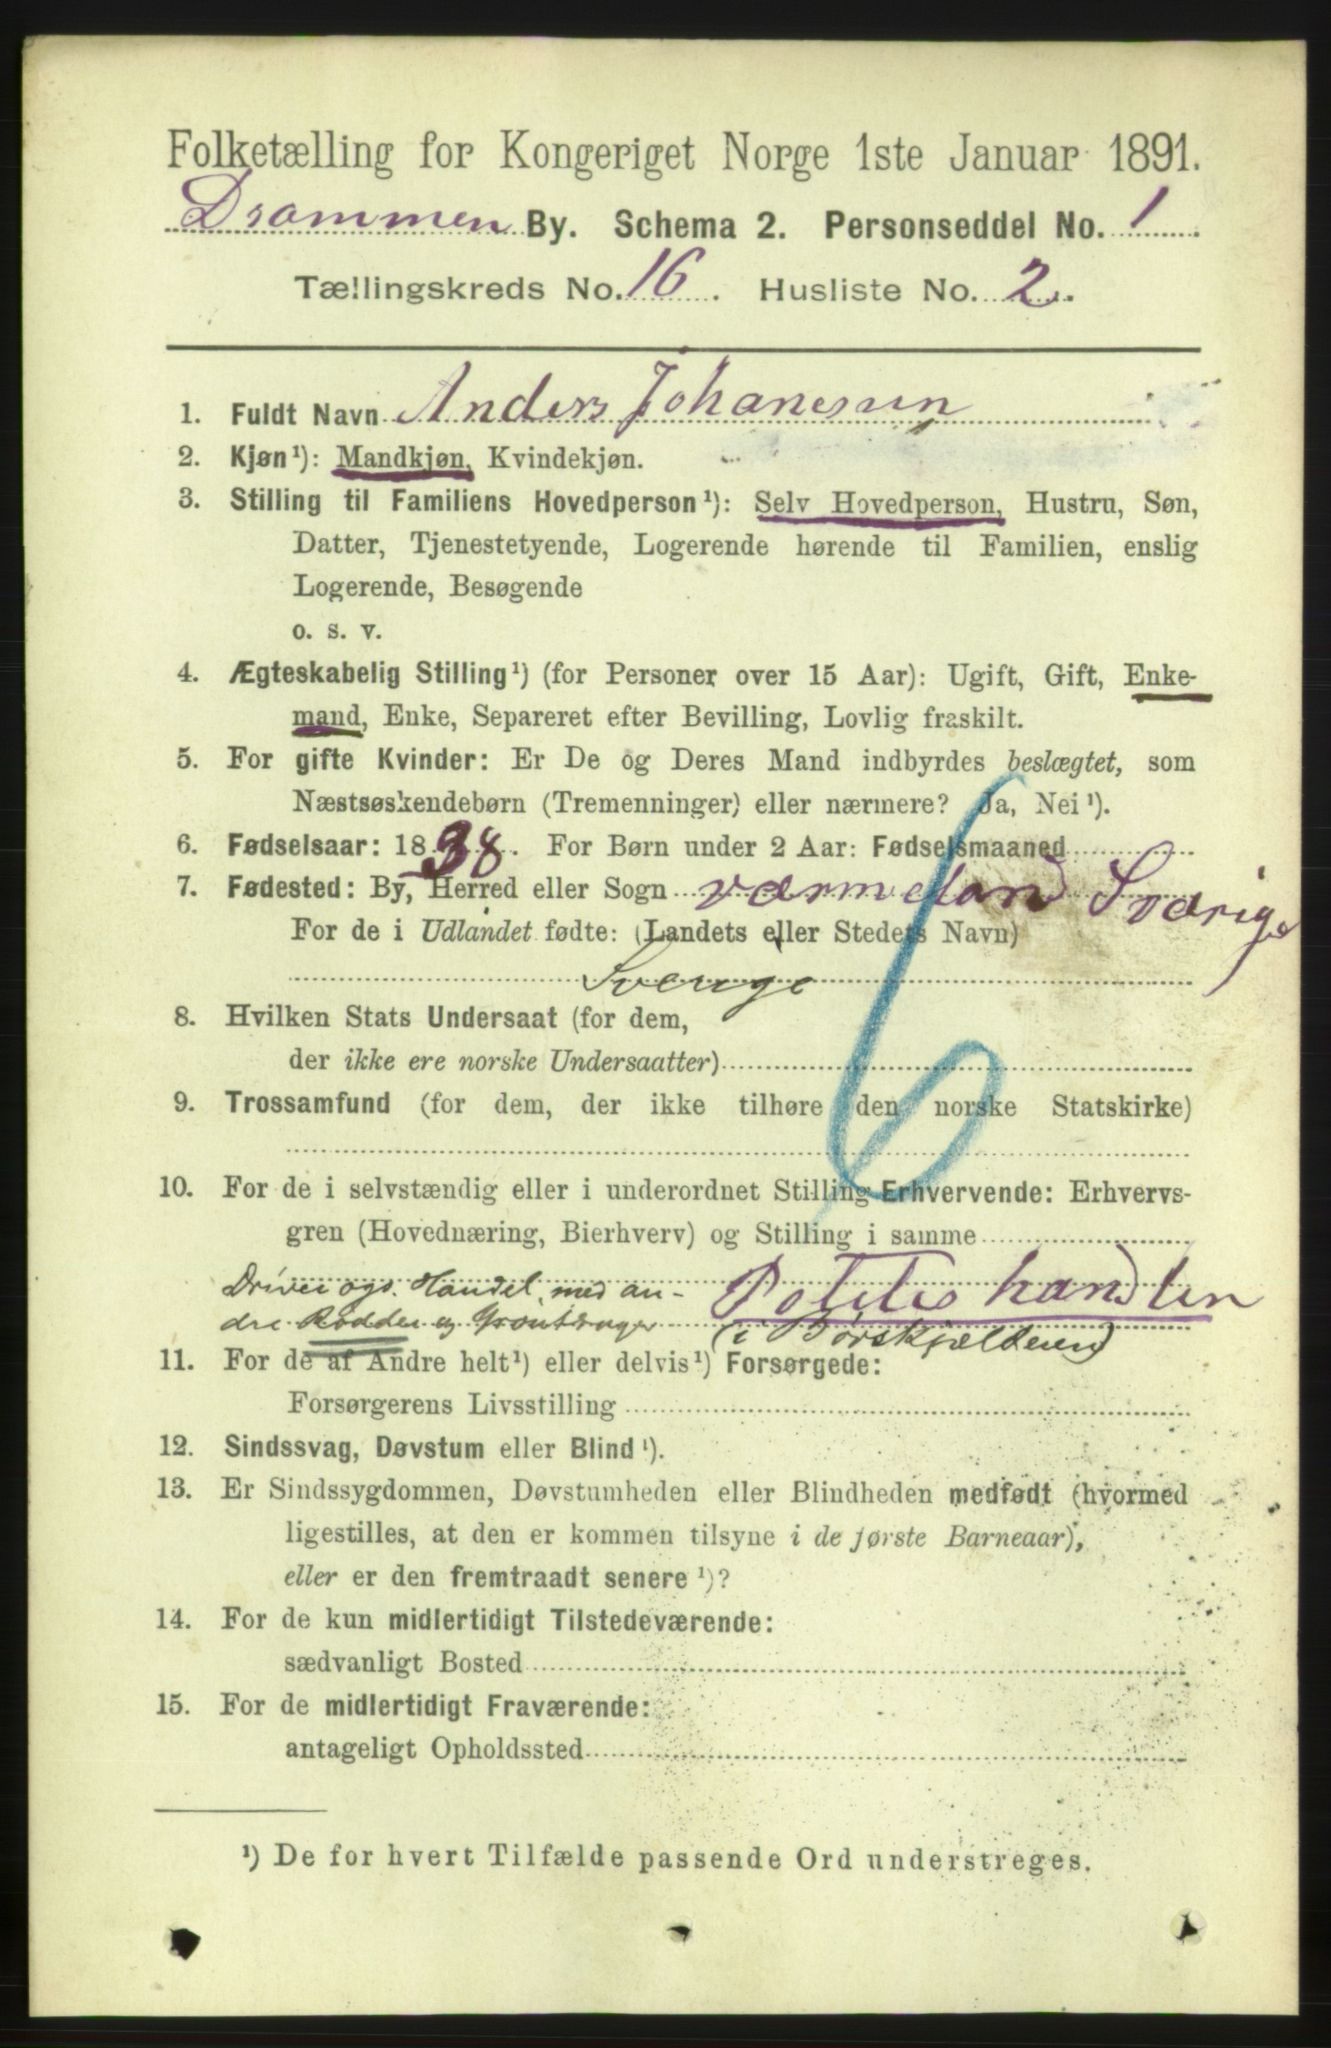 Folketælling for Kongeriget Norge 1ste Januar 1891.
Drammen By. Schema 2. Personseddel No. 1.
Tællingskreds No. 16. Husliste No. 2.
1. Fuldt Navn Anders Johanesen
2. Kjøn¹): Mandkjøn, Kvindekjøn.
3. Stilling til Familiens Hovedperson¹): Selv Hovedperson, Hustru, Søn,
Datter, Tjenestetyende, Logerende hørende til Familien, enslig
Logerende, Besøgende
o. s. v.
4. Ægteskabelig Stilling¹) (for Personer over 15 Aar): Ugift, Gift, Enke-
mand, Enke, Separeret efter Bevilling, Lovlig fraskilt.
5. For gifte Kvinder: Er De og Deres Mand indbyrdes beslægtet, som
Næstsøskendebørn (Tremenninger) eller nærmere? Ja, Nei¹).
6. Fødselsaar: 1838. For Børn under 2 Aar: Fødselsmaaned
7. Fødested: By, Herred eller Sogn værmeland Sværige
For de i Udlandet fødte: (Landets eller Stedets Navn)
Sverige
8. Hvilken Stats Undersaat (for dem,
der ikke ere norske Undersaatter)
9. Trossamfund (for dem, der ikke tilhøre den norske Statskirke)
10. For de i selvstændig eller i underordnet Stilling Erhvervende: Erhvervs-
gren (Hovednæring, Bierhverv) og Stilling i samme
Driver ogs. Handel med an- Potetes handler
dre Rødder og (i Børskjælderen)
11. For de af Andre helt¹) eller delvis¹) Forsørgede:
Forsørgerens Livsstilling
12. Sindssvag, Døvstum eller Blind¹).
13. Er Sindssygdommen, Døvstumheden eller Blindheden medfødt (hvormed
ligestilles, at den er kommen tilsyne i de første Barneaar),
eller er den fremtraadt senere¹)?
14. For de kun midlertidigt Tilstedeværende:
sædvanligt Bosted
15. For de midlertidigt Fraværende:
antageligt Opholdssted
¹) De for hvert Tilfælde passende Ord understreges.
6